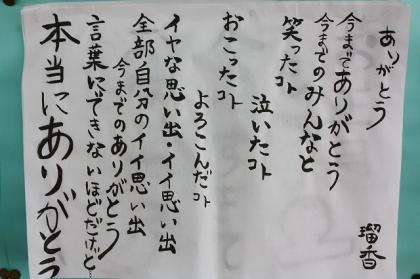 ありがとう
瑠香
今までありがとう
今までのみんなと
笑ったコト
泣いたコト
おこったコト
よろこんだコト
イヤな思い出・イイ思い出
全部自分のイイ思い出
今までのありがとう
言葉にできないほどだけど…
本当にありがとう